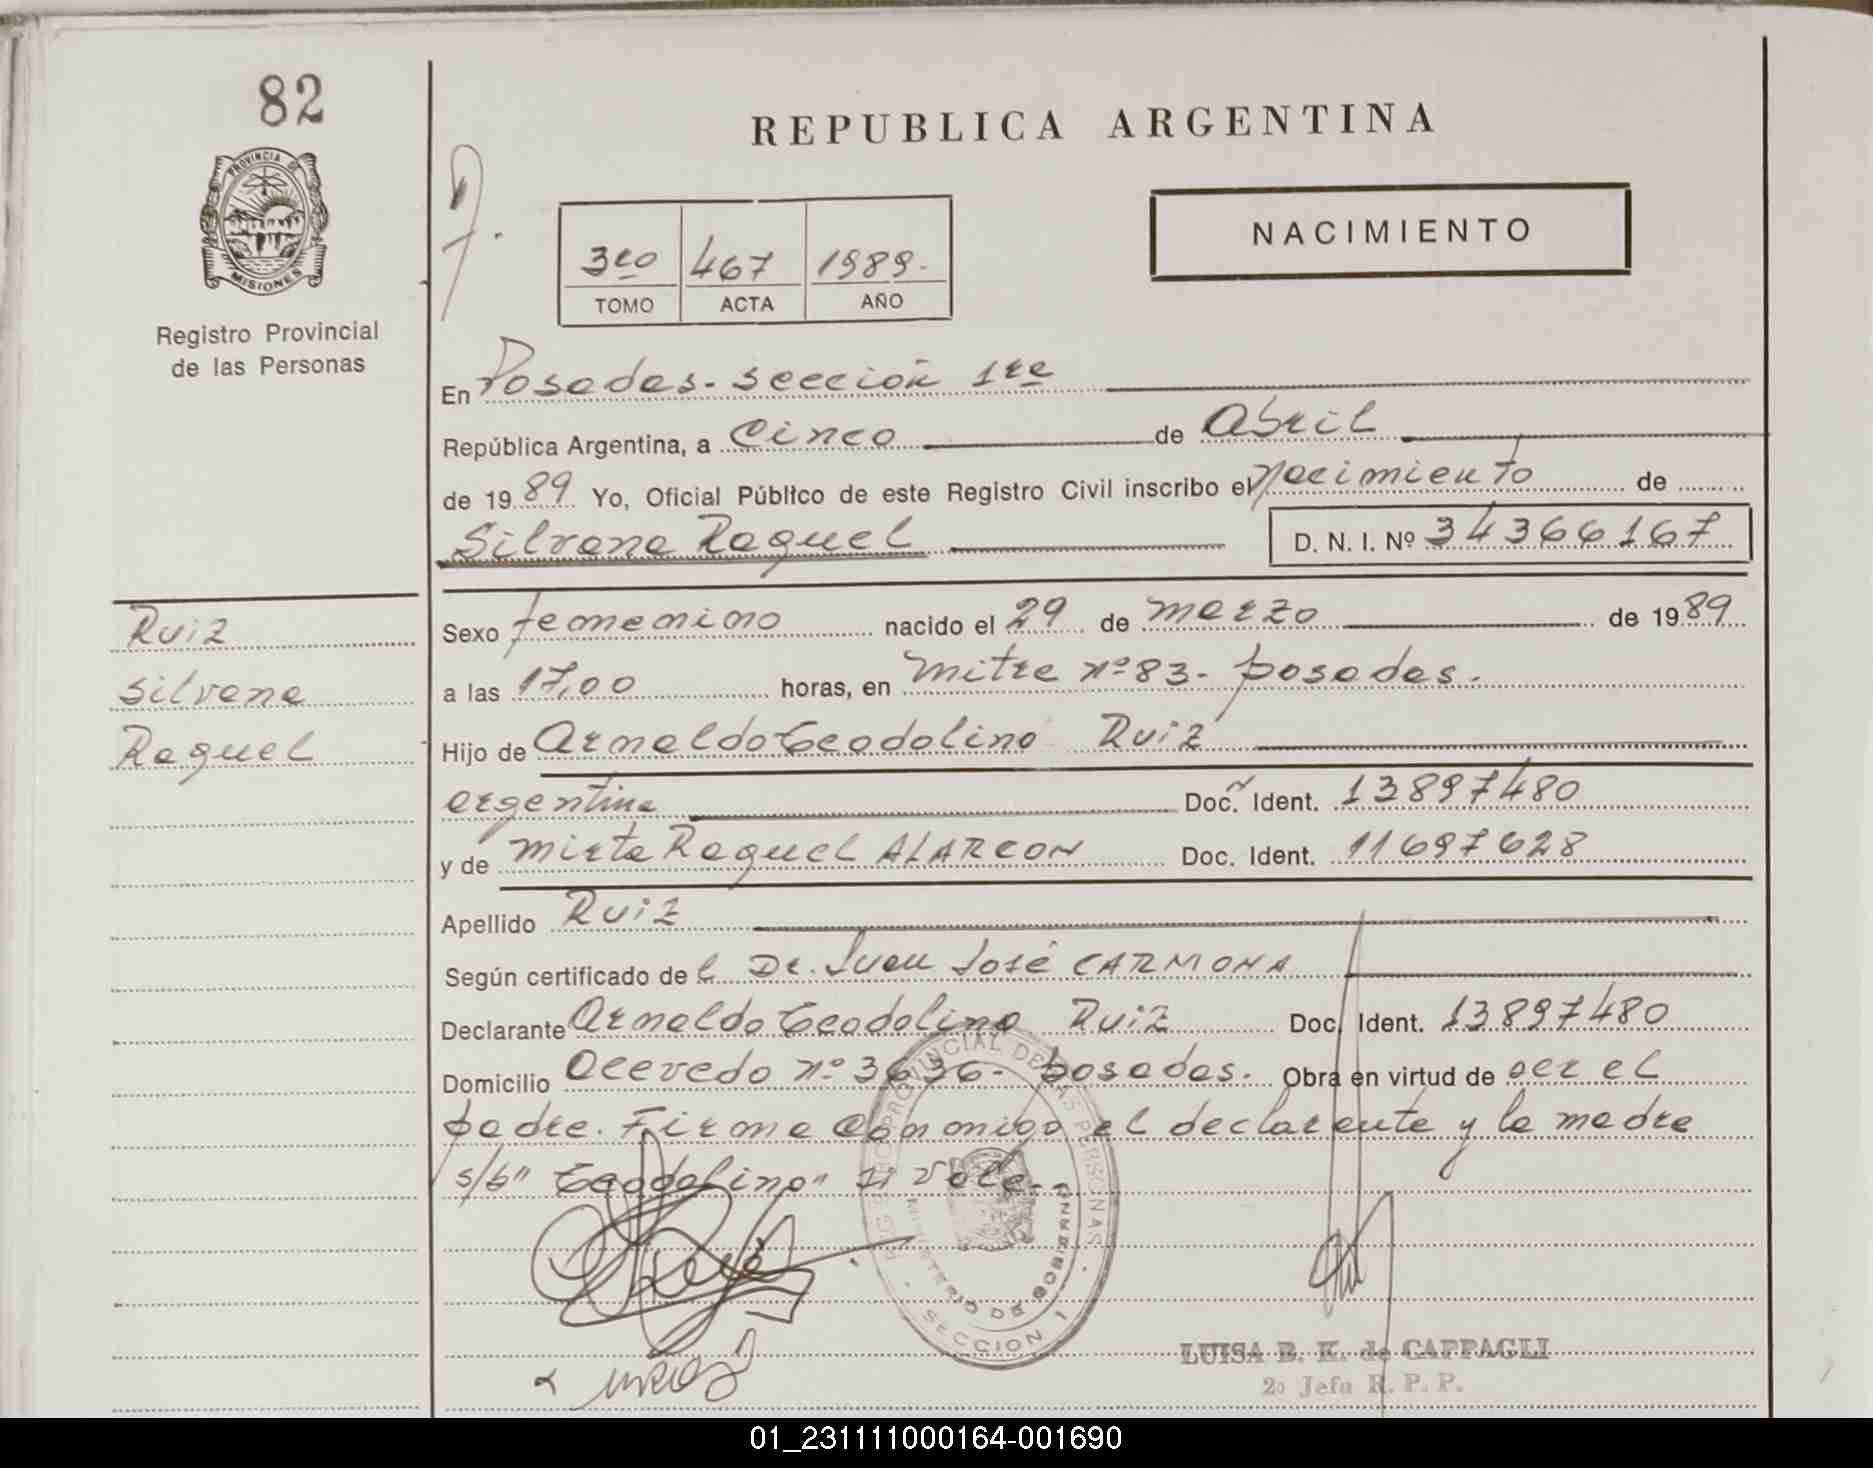 82
REPUBLICA ARGENTINA
PROVINCIA DE
MISIONES
Registro Provincial
de las Personas
3ro 467 1989.-
TOMO ACTA AÑO
NACIMIENTO
En Posadas. sección 1ra
República Argentina, a Cinco de Abril
de 1989 Yo, Oficial Público de este Registro Civil inscribo el Nacimiento de
Silvana Raquel D. N. I. Nº 34366167
Ruiz
Silvana
Raquel
Sexo femenino nacido el 29 de marzo de 1989
a las 17,00 horas, en mitre nº 83- posadas.
Hijo de Arnaldo Teodolino Ruiz
argentina Doc. Ident. 13897480
y de mirta Raquel ALARCON Doc. Ident. 11697628
Apellido Ruiz
Según certificado de l Dr. Juan José CARMONA
Declarante Arnaldo Teodolino Ruiz Doc. Ident. 13897480
Domicilio Acevedo nº 3636- posadas. Obra en virtud de ser el
padre. Firma conmigo el declarante y la madre
s/b" Teodolino" Si Vale.-
REGISTRO PROVINCIAL DE LAS PERSONAS
MINISTERIO DE GOBIERNO
SECCION 1
LUISA B. K. de CAPPAGLI
2º Jefa R. P. P.
01_231111000164-001690